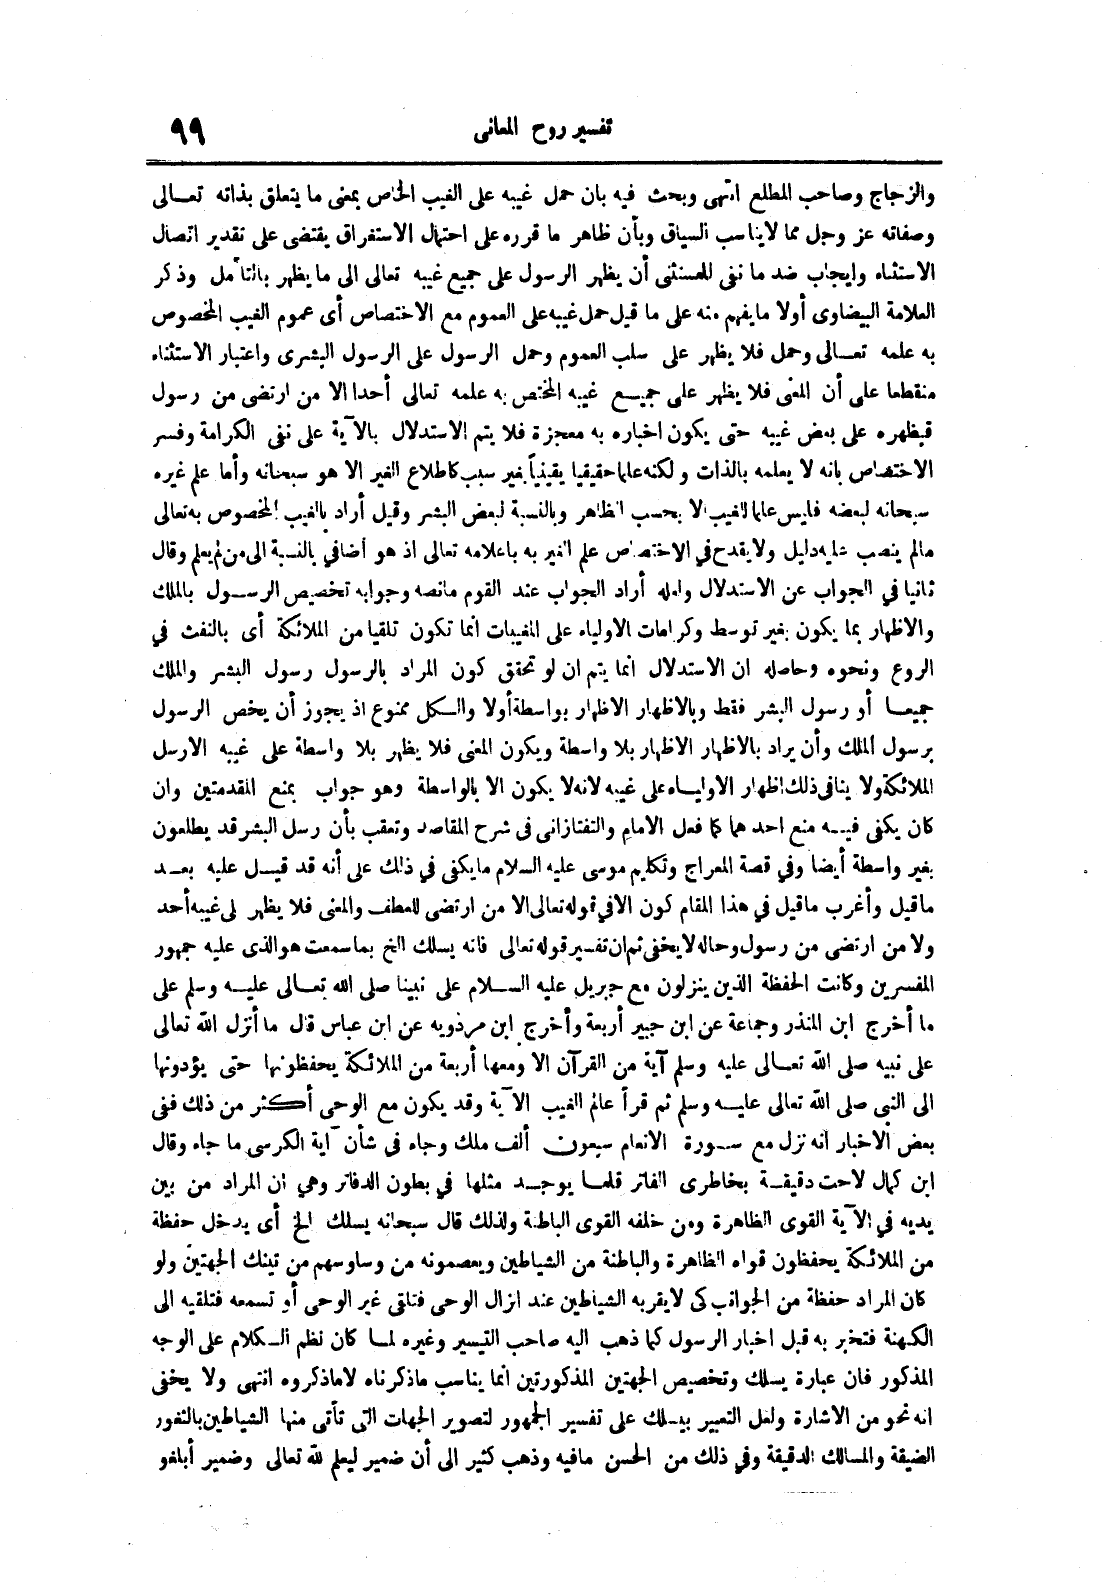 تفسير روح المعانى ٩٩
والزجاج وصاحب المطلع انتهى وبحث فيه بان حمل غيبه على الغيب الخاص بمعنى ما يتعلق بذاته تعالى
وصفاته عز وجل مما لايناسب السياق وبأن ظاهر ما قرره على احتمال الاستغراق يقتضى على تقدير اتصال
الاستثناء وايجاب ضد ما نفى للمستثنى أن يظهر الرسول على جميع غيبه تعالى الى ما يظهر بالتأمل وذكر
العلامة البيضاوى أولا مايفهم منه على ما قيل حمل غيبه على العموم مع الاختصاص أى عموم الغيب المخصوص
به علمه تعالى وحمل فلا يظهر على سلب العموم وحمل الرسول على الرسول البشرى واعتبار الاستثناء
منقطعا على أن المعنى فلا يظهر على جميع غيبه المختص به علمه تعالى أحدا الا من ارتضى من رسول
فيظهره على بعض غيبه حتى يكون اخباره به معجزة فلا يتم الاستدلال بالآية على نفى الكرامة وفسر
الاختصاص بانه لا يعلمه بالذات والكنه علما حقيقيا يقينيا بغير سبب كاطلاع الغير الا هو سبحانه وأما علم غيره
سبحانه لبعضه فليس علما للغيب الا بحسب الظاهر وبالنسبة لبعض البشر وقيل أراد بالغيب المخصوص به تعالى
مالم ينصب عليه دليل ولا يقدح في الاختصاص علم الغير به باعلامه تعالى اذ هو أضافي بالنسبة الى من لم يعلم وقال
ثانيا في الجواب عن الاستدلال ولعله أراد الجواب عند القوم مانصه وجوابه تخصيص الرسول بالملك
والاظهار بما يكون بغير توسط وكرامات الاولياء على المغيبات انما تكون تلقيا من الملائكة أى بالنفث في
الروع ونحوه وحاصله ان الاستدلال انما يتم ان لو تحقق كون المراد بالرسول رسول البشر والملك
جميعا أو رسول البشر فقط وبالاظهار الاظهار بواسطة أولا والكل ممنوع اذ يجوز أن يخص الرسول
برسول الملك وأن يراد بالاظهار الاظهار بلا واسطة ويكون المعنى فلا يظهر بلا واسطة على غيبه الارسل
الملائكة ولا ينافى ذلك اظهار الاولياء على غيبه لانه لا يكون الا بالواسطة وهو جواب بمنع المقدمتين وان
كان يكفى فيه منع احدهما كما فعل الامام والتفتازانى فى شرح المقاصد وتعقب بأن رسل البشر قد يطلعون
بغير واسطة أيضا وفي قصة المعراج وتكليم موسى عليه السلام مايكفى في ذلك على أنه قد قيل عليه بعد
ماقيل وأغرب ماقيل في هذا المقام كون الا في قوله تعالى الا من ارتضى للعطف والمعنى فلا يظهر على غيبه أحد
ولا من ارتضى من رسول وحاله لا يخفى ثم ان تفسير قوله تعالى فانه يسلك الخ بما سمعت هو الذى عليه جمهور
المفسرين وكانت الحفظة الذين ينزلون مع جبريل عليه السلام على نبينا صلى الله تعالى عليه وسلم على
ما أخرج ابن المنذر وجماعة عن ابن جبير أربعة وأخرج ابن مردويه عن ابن عباس قال ما أنزل الله تعالى
على نبيه صلى الله تعالى عليه وسلم آية من القرآن الا ومعها أربعة من الملائكة يحفظونها حتى يؤدونها
الى النبي صلى الله تعالى عليه وسلم ثم قرأ عالم الغيب الآية وقد يكون مع الوحى أكثر من ذلك ففى
بعض الاخبار انه نزل مع سورة الانعام سبعون ألف ملك وجاء فى شأن آية الكرسى ما جاء وقال
ابن كمال لاحت دقيقة بخاطرى الفاتر قلما يوجد مثلها في بطون الدفاتر وهي أن المراد من بين
يديه في الآية القوى الظاهرة ومن خلفه القوى الباطنة ولذلك قال سبحانه يسلك الخ أى يدخل حفظة
من الملائكة يحفظون قواه الظاهرة والباطنة من الشياطين ويعصمونه من وساوسهم من تينك الجهتين ولو
كان المراد حفظة من الجوانب كى لا يقربه الشياطين عند انزال الوحى فتلقى غير الوحى أو تسمعه فتلقيه الى
الكهنة فتخبر به قبل اخبار الرسول كما ذهب اليه صاحب التيسير وغيره لما كان نظم الكلام على الوجه
المذكور فان عبارة يسلك وتخصيص الجهتين المذكورتين انما يناسب ماذكرناه لا ماذكروه انتهى ولا يخفى
انه نحو من الاشارة ولعل التعبير بيسلك على تفسير الجمهور لتصوير الجهات التى تأتى منها الشياطين بالثغور
الضيقة والمسالك الدقيقة وفي ذلك من الحسن مافيه وذهب كثير الى أن ضمير ليعلم لله تعالى وضمير أبلغو